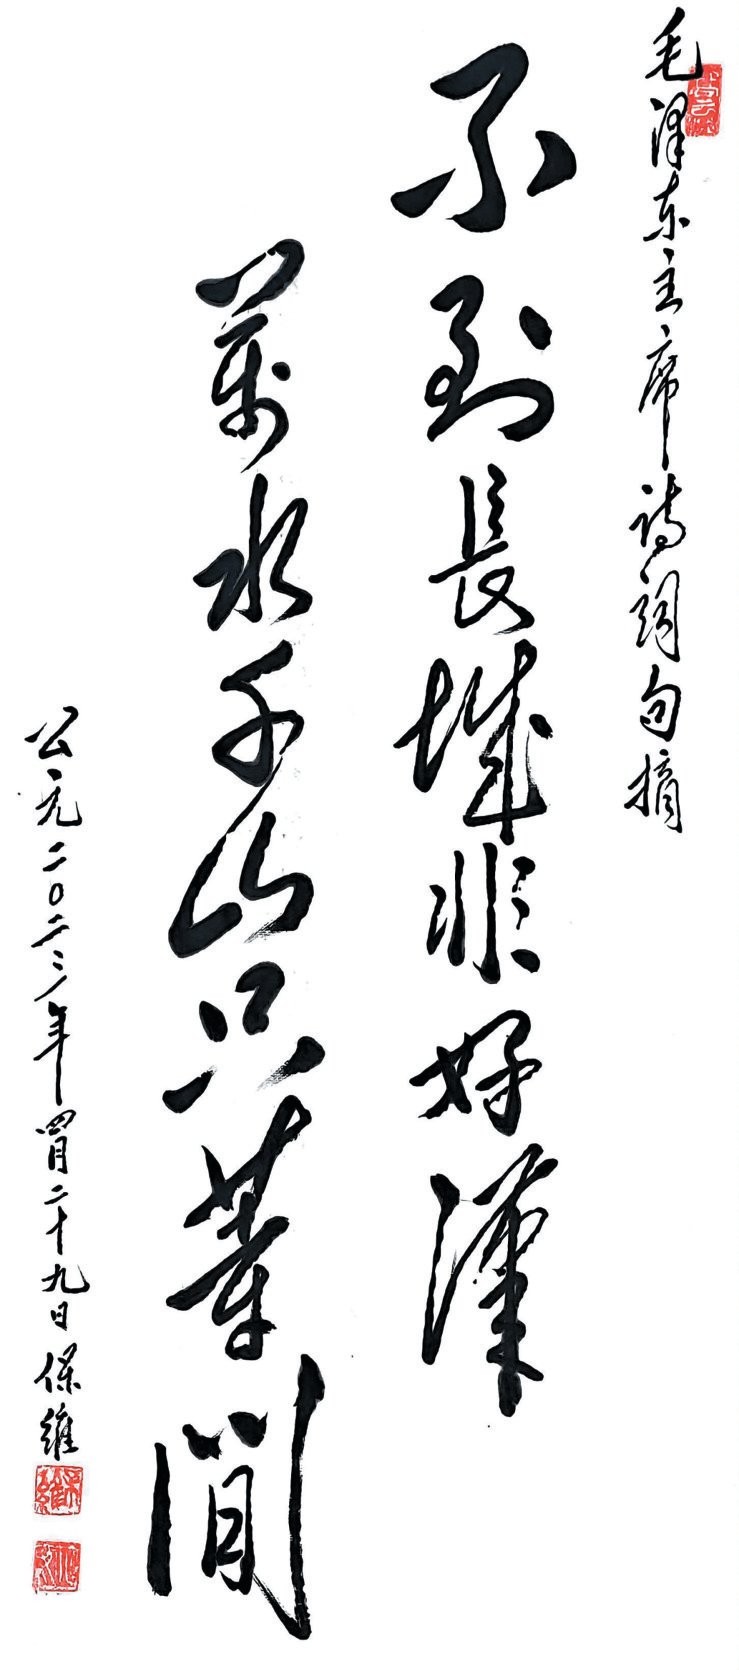 毛泽东主席诗词句摘
不到長城非好漢
萬水千山只等閒
公元二〇二三年四月二十九日 保維